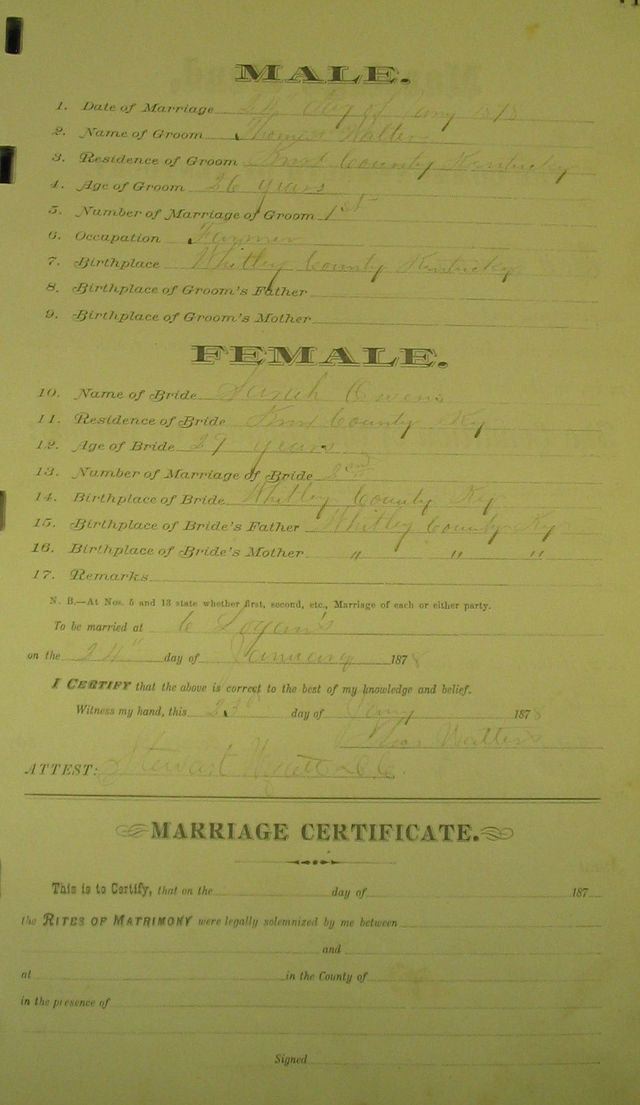 MALE.
1. Date of Marriage 24" day of Jany 1878
2. Name of Groom Thomas Walters
3. Residence of Groom Knox County Kentucky
4. Age of Groom 26 years
5. Number of Marriage of Groom 1st
6. Occupation Farmer
7. Birthplace Whitley County Kentucky
8. Birthplace of Groom's Father
9. Birthplace of Groom's Mother
FEMALE.
10. Name of Bride Sarah Owens
11. Residence of Bride Knox County Ky
12. Age of Bride 27 years
13. Number of Marriage of Bride 2nd
14. Birthplace of Bride Whitley County Ky
15. Birthplace of Bride's Father Whitley County Ky
16. Birthplace of Bride's Mother " " "
17. Remarks
N. B.—At Nos. 5 and 13 state whether first, second, etc., Marriage of each or either party.
To be married at C Logan's
on the 24" day of January 1878
I CERTIFY that the above is correct to the best of my knowledge and belief.
Witness my hand, this 23rd day of Jany 1878
Thos Walters
ATTEST: Stewart
MARRIAGE CERTIFICATE.
This is to Certify, that on the day of 187
the RITES OF MATRIMONY were legally solemnized by me between
and
at in the County of
in the presence of
Signed